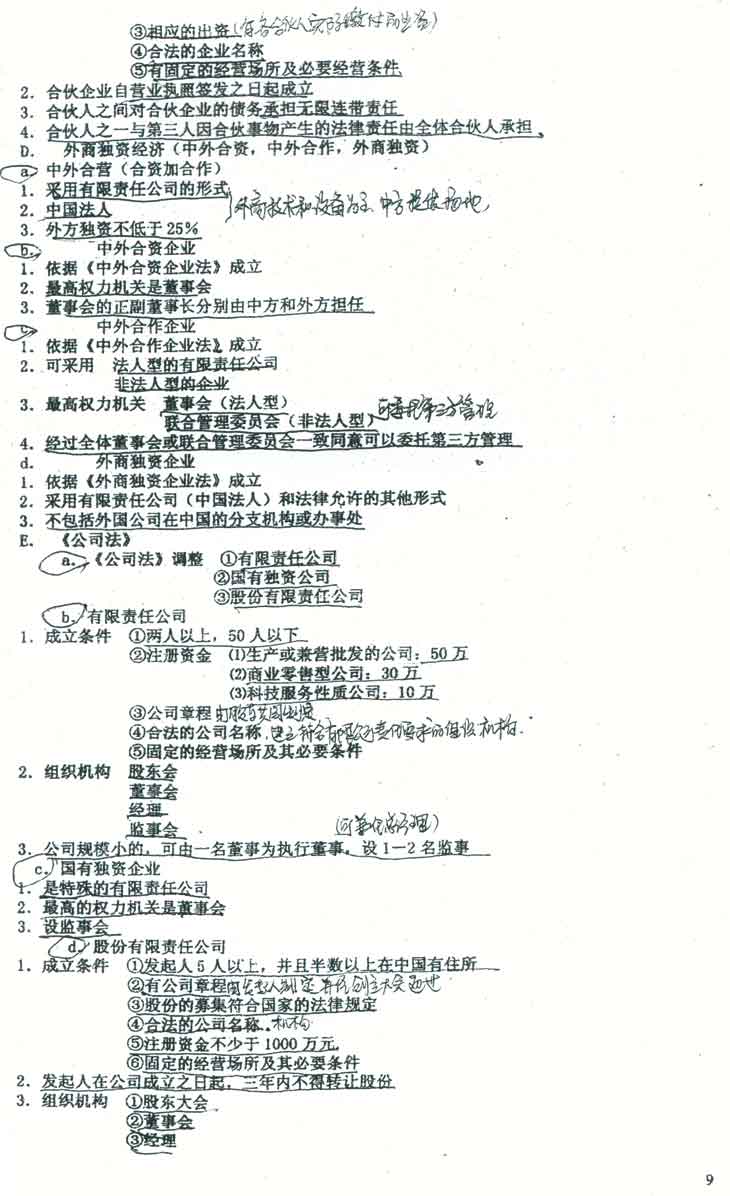 ③相应的出资(有各合伙人实际缴付的出资)
④合法的企业名称
⑤有固定的经营场所及必要经营条件
2. 合伙企业自营业执照签发之日起成立
3. 合伙人之间对合伙企业的债务承担无限连带责任
4. 合伙人之一与第三人因合伙事物产生的法律责任由全体合伙人承担。
D. 外商独资经济(中外合资,中外合作,外商独资)
a. 中外合营(合资加合作)
1. 采用有限责任公司的形式
2. 中国法人 外商技术和设备为主、中方提供场地,
3. 外方独资不低于25%
b. 中外合资企业
1. 依据《中外合资企业法》成立
2. 最高权力机关是董事会
3. 董事会的正副董事长分别由中方和外方担任
c. 中外合作企业
1. 依据《中外合作企业法》成立
2. 可采用 法人型的有限责任公司
非法人型的企业
3. 最高权力机关 董事会(法人型)
联合管理委员会(非法人型) 可委托第三方管理
4. 经过全体董事会或联合管理委员会一致同意可以委托第三方管理
d. 外商独资企业
1. 依据《外商独资企业法》成立
2. 采用有限责任公司(中国法人)和法律允许的其他形式
3. 不包括外国公司在中国的分支机构或办事处
E. 《公司法》
a.《公司法》调整 ①有限责任公司
②国有独资公司
③股份有限责任公司
b. 有限责任公司
1. 成立条件 ①两人以上,50人以下
②注册资金 ⑴生产或兼营批发的公司:50万
⑵商业零售型公司:30万
⑶科技服务性质公司:10万
③公司章程 由股东共同制定
④合法的公司名称,建立符合有限公司要求的组织机构.
⑤固定的经营场所及其必要条件
2. 组织机构 股东会
董事会
经理
监事会 (可兼任总经理)
3. 公司规模小的,可由一名董事为执行董事。设1—2名监事
c. 国有独资企业
1. 是特殊的有限责任公司
2. 最高的权力机关是董事会
3. 设监事会
d. 股份有限责任公司
1. 成立条件 ①发起人5人以上,并且半数以上在中国有住所
②有公司章程 由发起人制定 并经创立大会通过
③股份的募集符合国家的法律规定
④合法的公司名称. 机构
⑤注册资金不少于1000万元
⑥固定的经营场所及其必要条件
2. 发起人在公司成立之日起,三年内不得转让股份
3. 组织机构 ①股东大会
②董事会
③经理
9